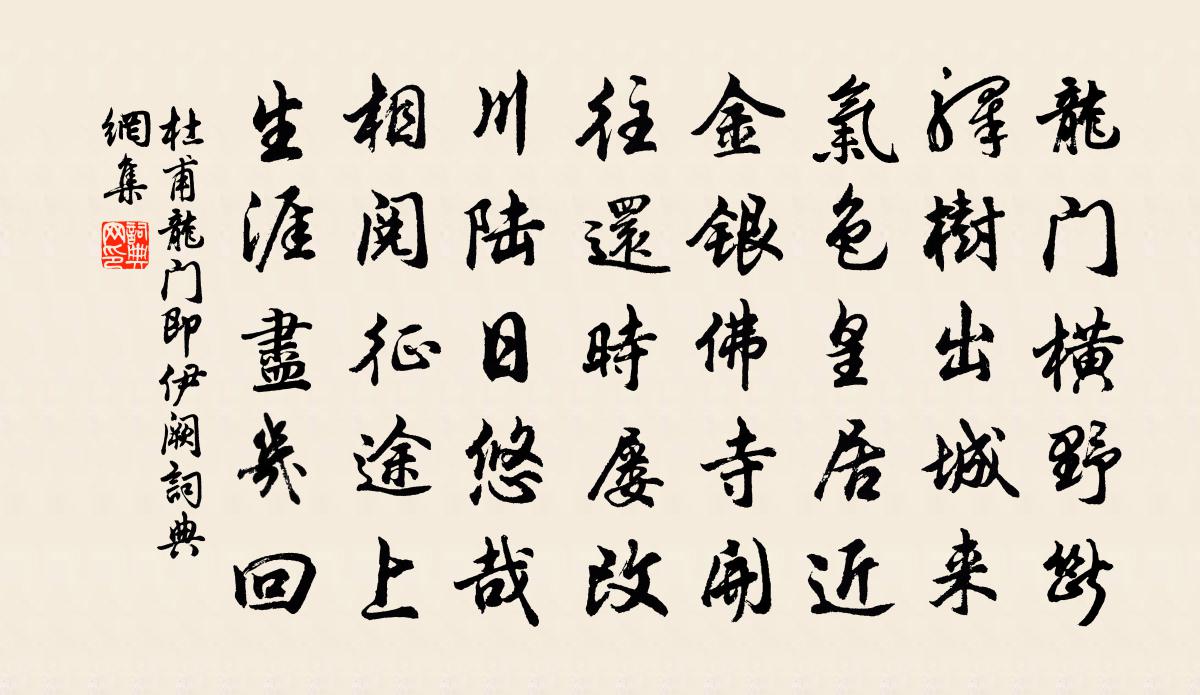 龍门横野断
驛樹出城来
氣色皇居近
金銀佛寺開
往還時屢改
川陆日悠哉
相阅征途上
生涯盡幾回
杜甫龍门即伊阙詞典
網集
詞典
网印